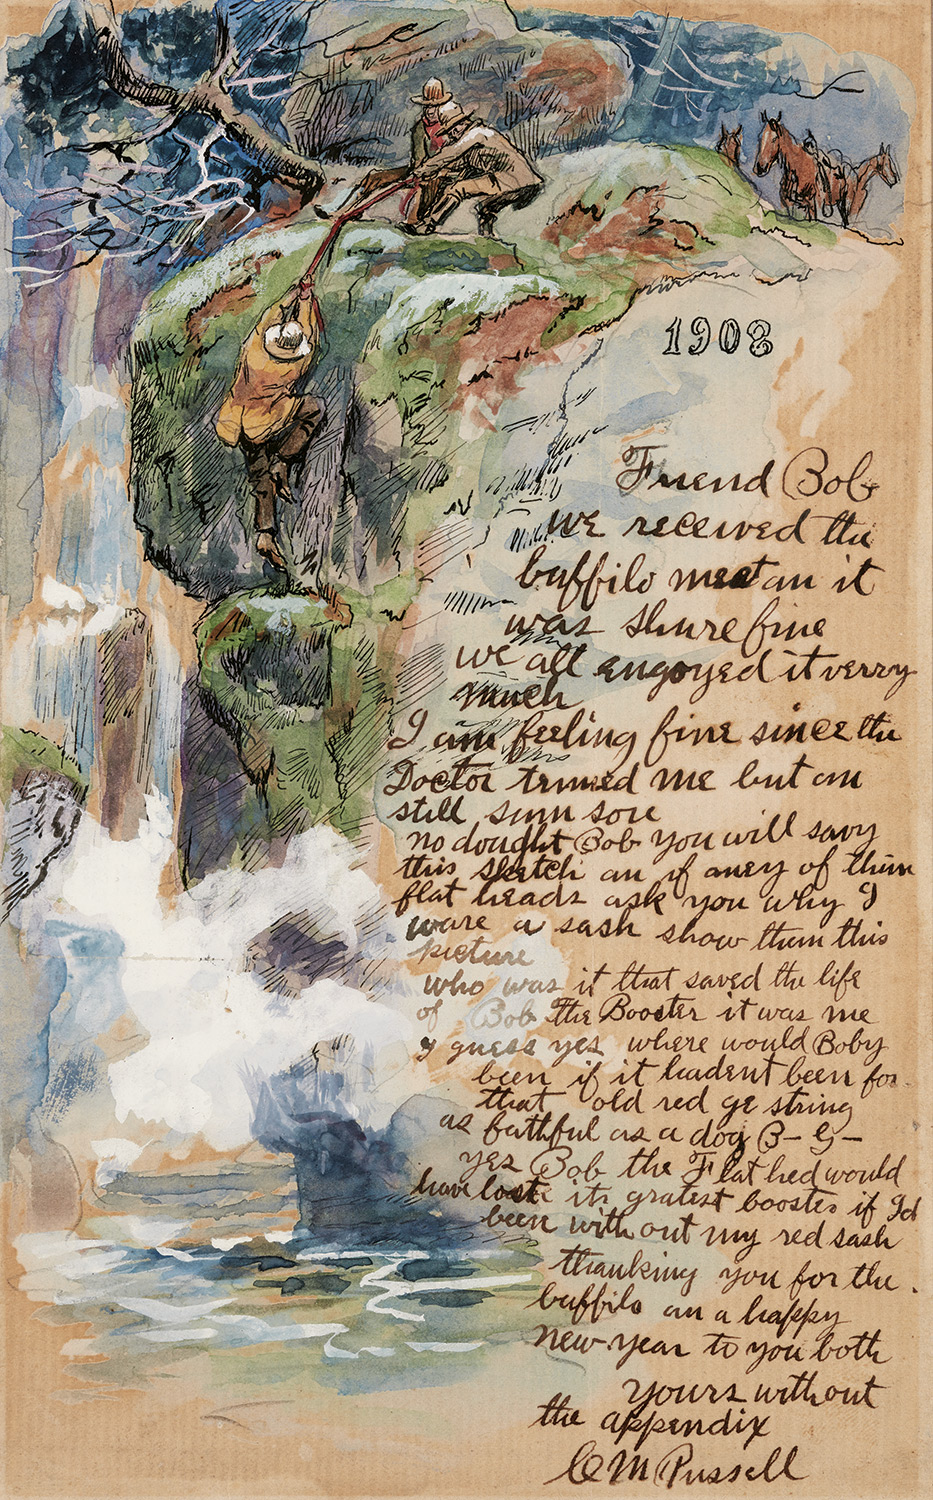 1908
Friend Bob
we received the
buffilo meat an it
was shure fine
we all engoyed it verry
much
I am feeling fine since the
Doctor trimed me but am
still sum sore
no dought Bob you will savy
this sketch an if aney of them
flat heads ask you why I
ware a sash show them this
picture
who was it that saved the life
of Bob The Booster it was me
I guess yes where would Boby
been if it hadent been for
that old red ge string
as faithful as a dog B- G-
yes Bob the Flat hed would
have lost its gratest booster if Id
been with out my red sash
thanking you for the
buffilo an a happy
New year to you both
yours without
the appendix
C M Russell